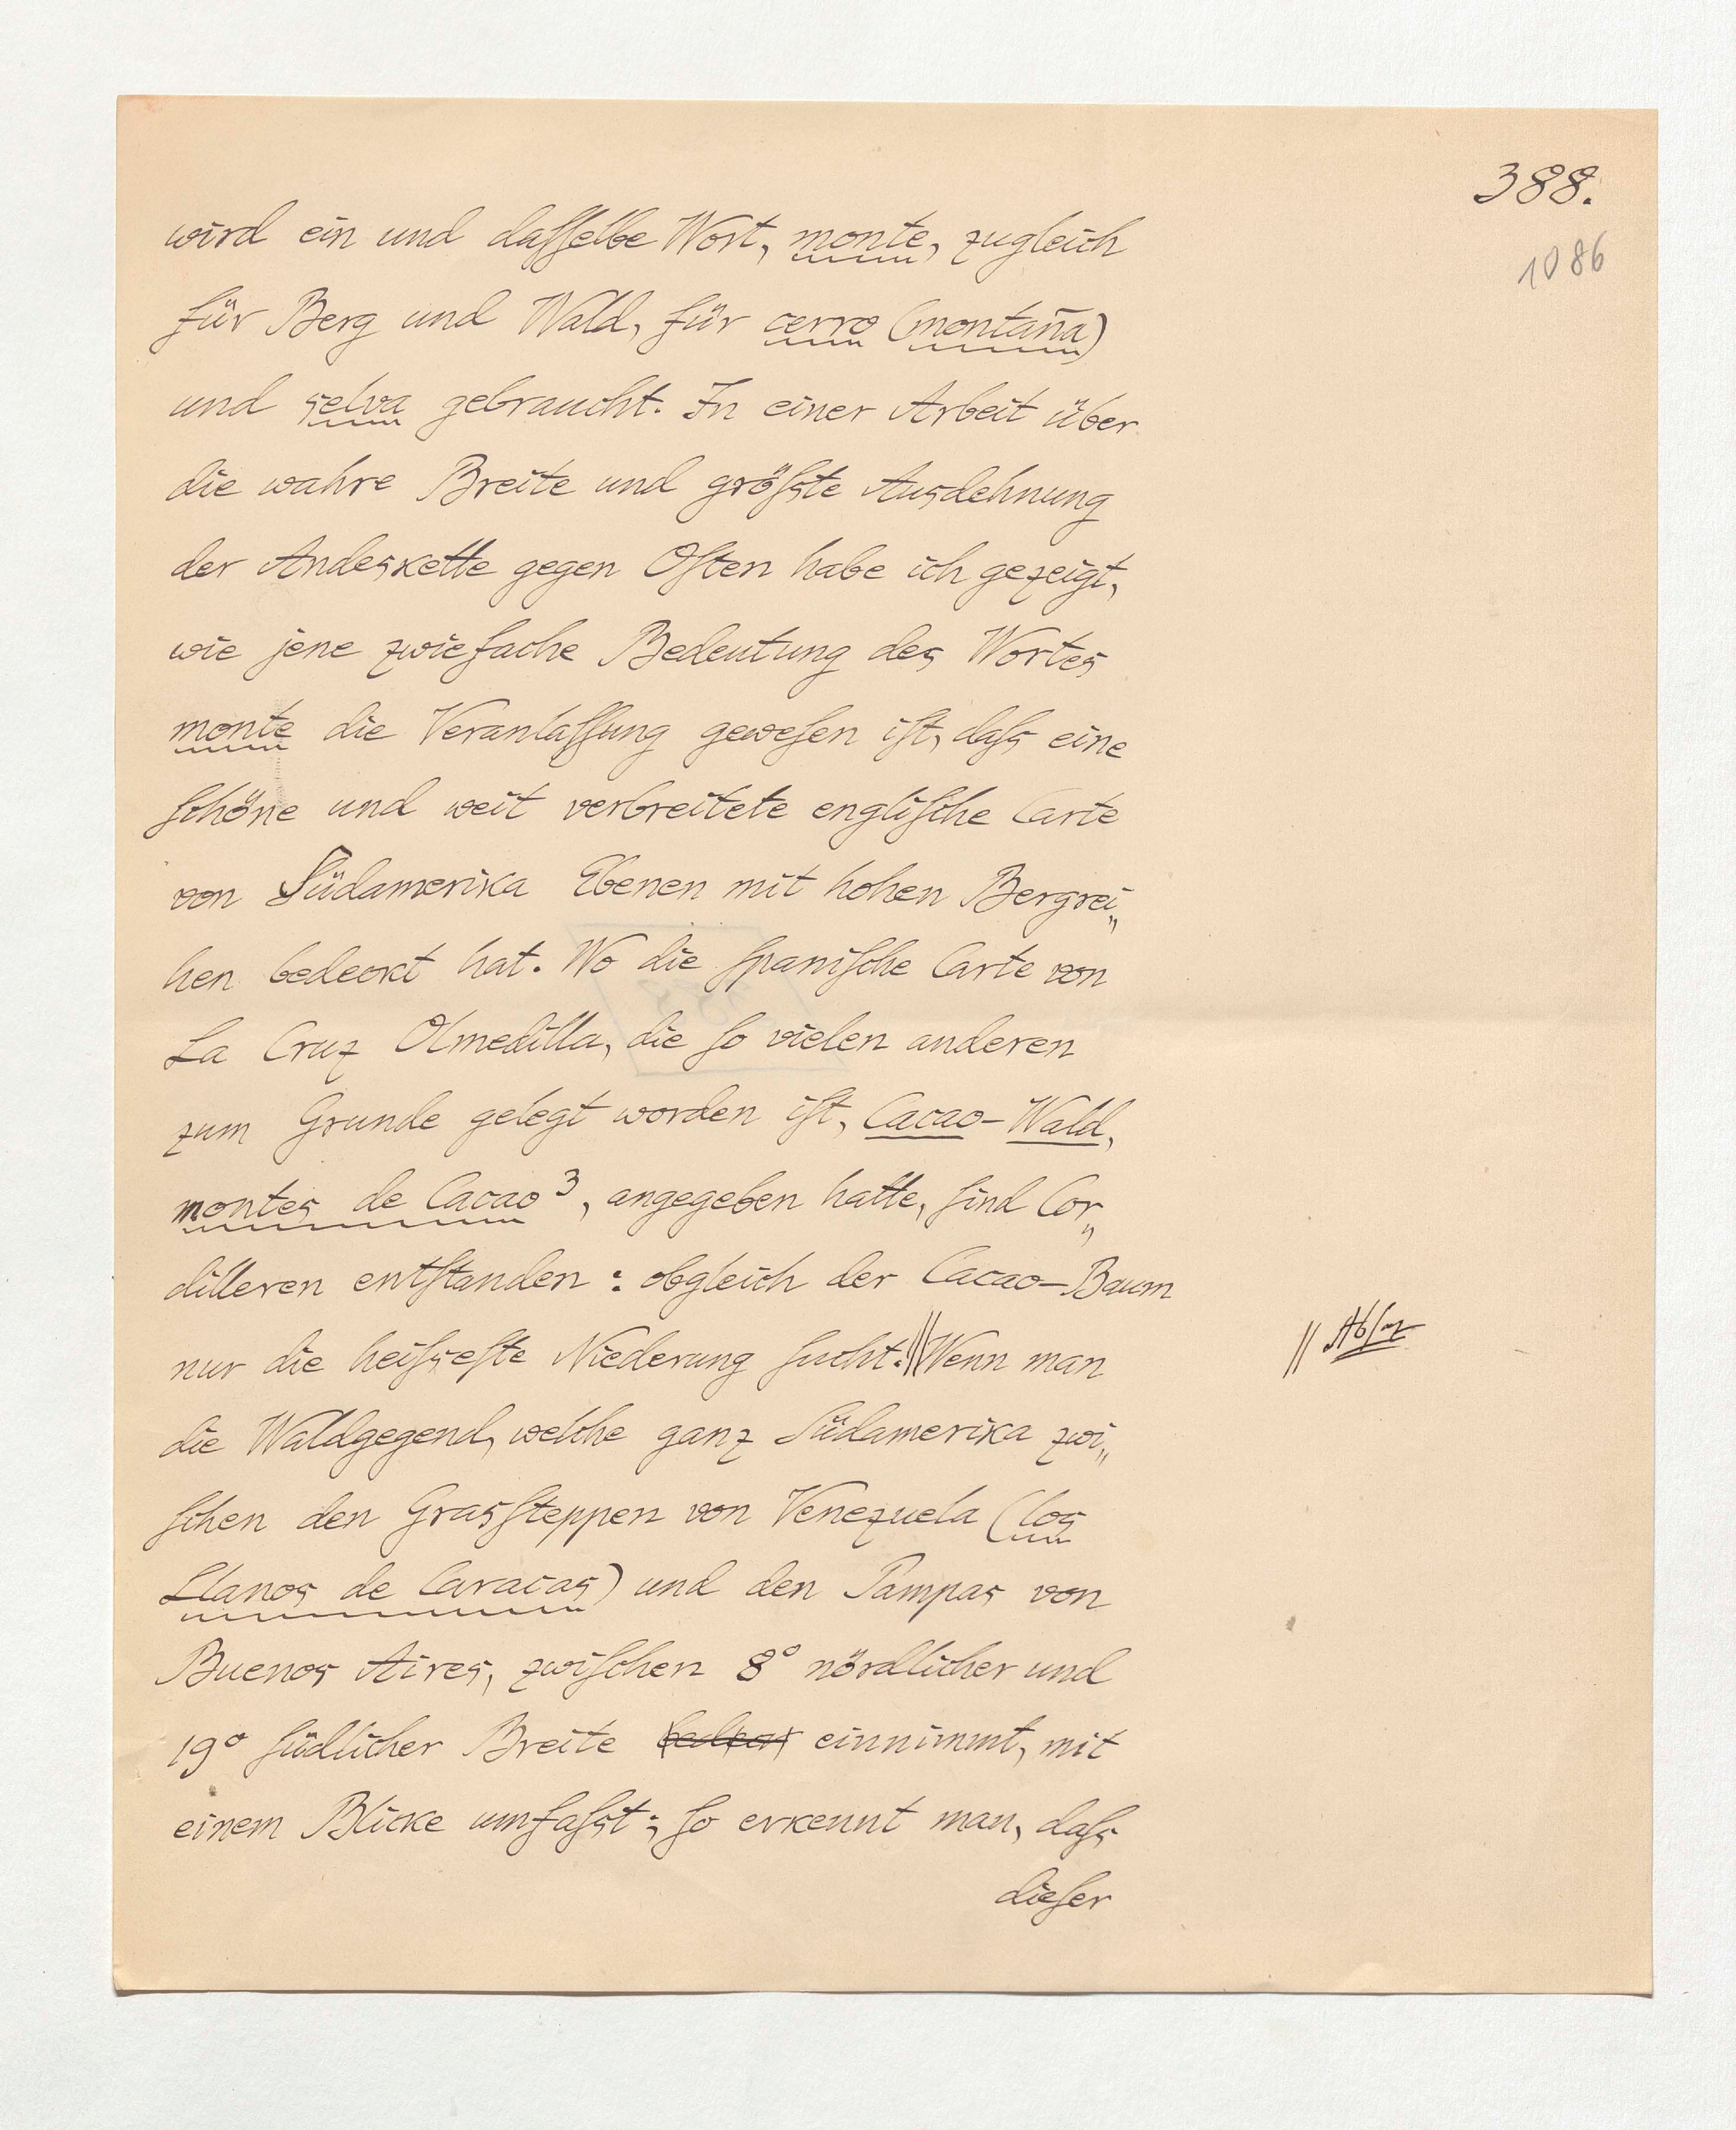 388.
1086
wird ein und daſſelbe Wort, monte, zugleich
für Berg und Wald, für cerro (montaña)
und selva gebraucht. In einer Arbeit über
die wahre Breite und größte Ausdehnung
der Andeskette gegen Oſten habe ich gezeigt,
wie jene zwiefache Bedeutung des Wortes
monte die Veranlaſſung geweſen iſt, daſs eine
ſchöne und weit verbreitete engliſche Carte
von Südamerika Ebenen mit hohen Bergrei„
hen bedeckt hat. Wo die ſpaniſche Carte von
La Cruz Olmedilla, die ſo vielen anderen
zum Grunde gelegt worden iſt, Cacao-Wald,
montes de Cacao³, angegeben hatte, ſind Cor„
dilleren entſtanden: obgleich der Cacao-Baum
nur die heiſseſte Niederung ſucht.||Wenn man
|| Abſaz
die Waldgegend, welche ganz Südamerika zwi„
ſchen den Grasſteppen von Venezuela (los
Llanos de Caracas) und den Pampas von
Buenos Aires, zwiſchen 8° nördlicher und
19° ſüdlicher Breite einnimmt, mit
einem Blicke umfaſst; ſo erkennt man, daſs
dieſer